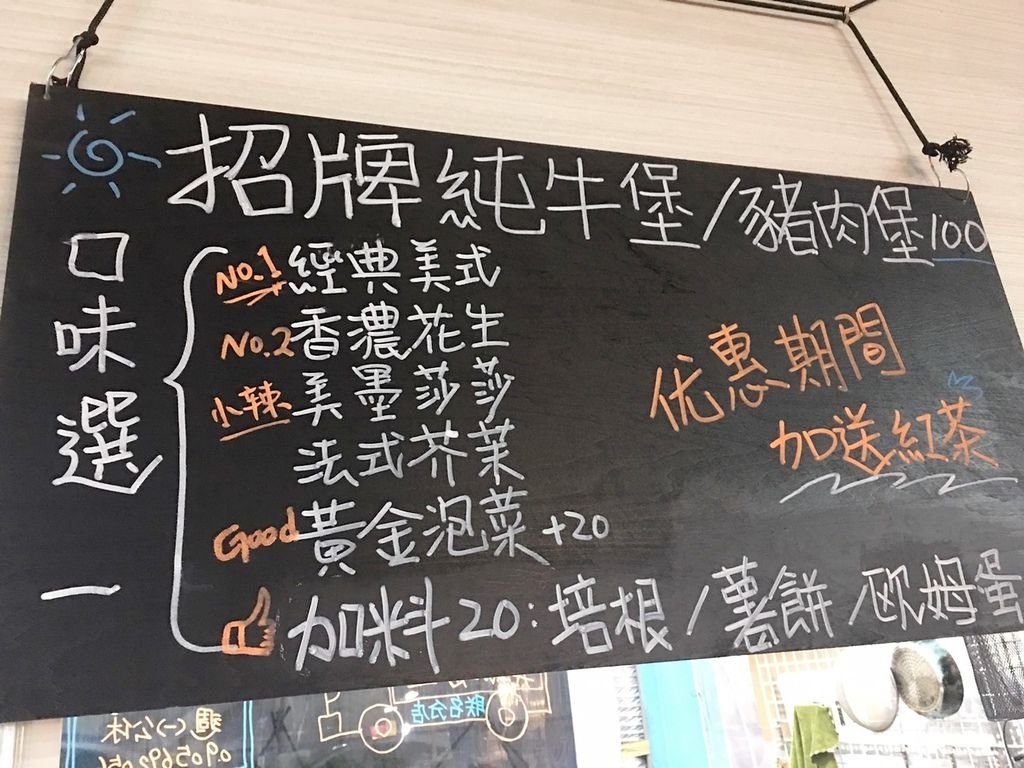 招牌純牛堡/豬肉堡100
口味選一
No.1 經典美式
No.2 香濃花生
小辣 美墨莎莎
法式芥茉
Good 黃金泡菜 +20
加料20:培根/薯餅/歐姆蛋
优惠期間
加送紅茶
週(一)公休
联名分店